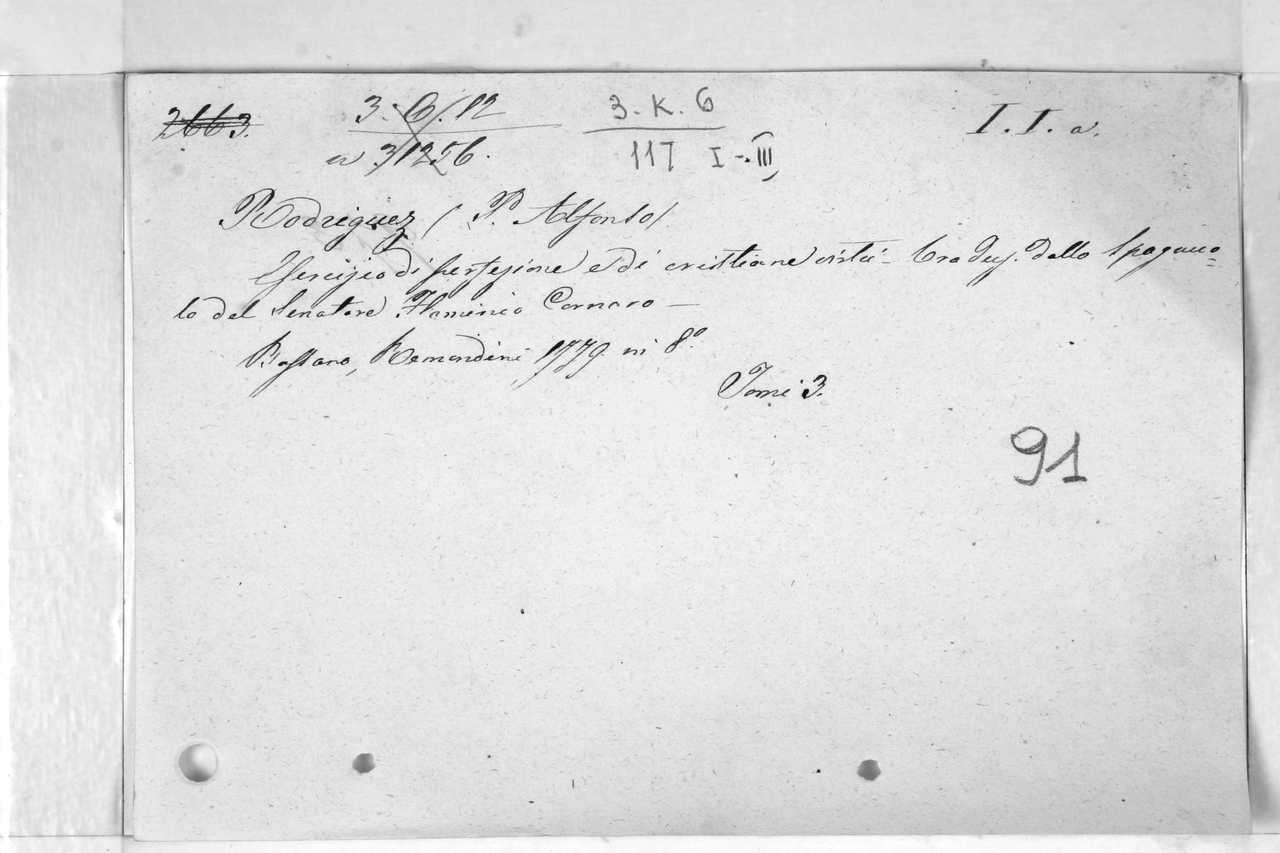 2663.
3. G. 12
a 31256.
3. K. 6
117 I-III
I. I. a.
Rodriguez (P. Alfonso)
Esercizio di perfezione e di cristiane virtù - traduz. dallo Spagnuo=
lo del Senatore Flaminio Cornaro -
Bassano, Remondini 1779 in 8º
Tomi 3.
91